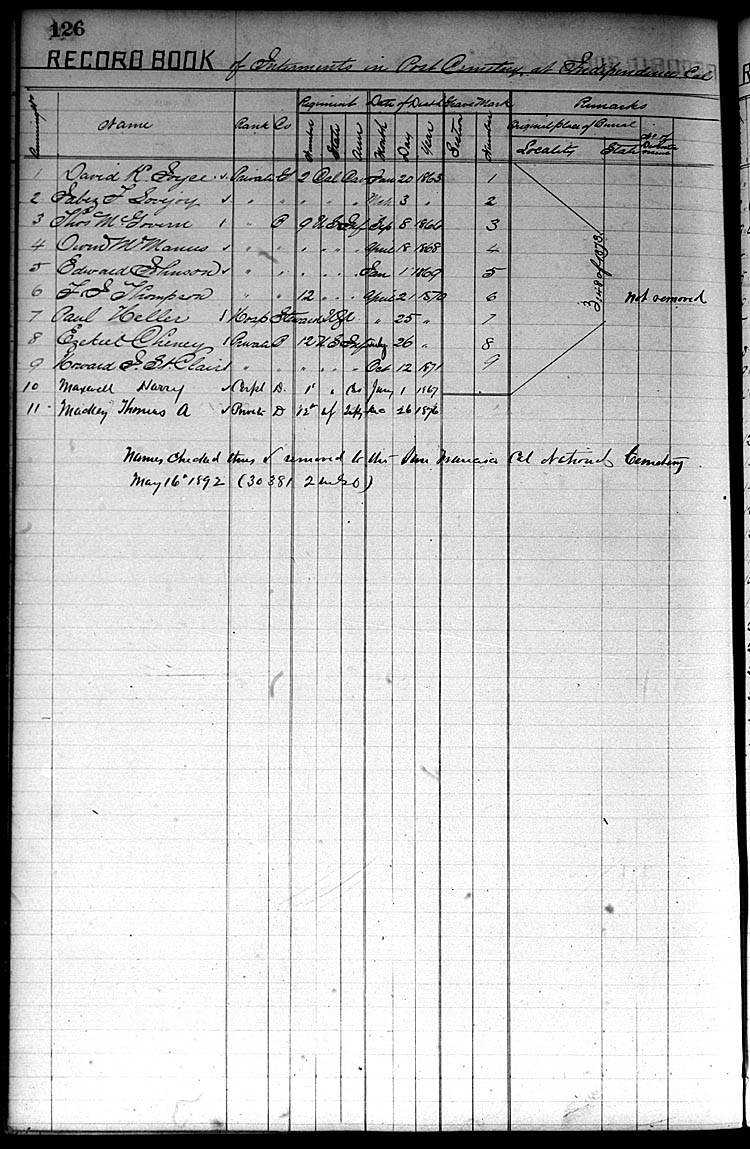 126
RECORD BOOK of Interments in Post Cemetery, at Independence, Cal
Regiment Date of Death Grave Mark Remarks
Name Rank Co Number State Arm Month Day Year Section Number Original place of Burial
Locality State No. of
1 David K. Joyce ✓ Private G 2 Cal Cav Jan 20 1863 1
2 Jabez F. Lovejoy ✓ " " " " " 3 " 2
3 Thos McGovern Private 9 U S Inf Sep 8 1866 3
4 Owen McManus ✓ " " " " " April 18 1868 4
5 Edward Johnson ✓ " " " " " Jan 1 1869 5
6 F. J. Thompson " " 12 " " April 21 1870 6 Not removed
7 Paul Keller Hosp Steward " 25 " 7
8 Ezekiel Cheney Private 12 U S Inf July 26 " 8
9 Howard J. St Clair " " " " " Oct 12 1871 9
10 Maxwell Harry ✓ Corpl D. 1st " Jany 1 1867
11 Mackey Thomas A ✓ Private D 12th Dec 26 1876
3148 of 1873.
Names checked thus ✓ removed to the San Francisco Cal National Cemetery
May 16" 1892 (30381 )